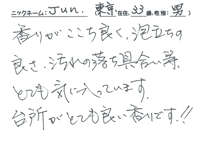 ニックネーム:Jun. 東京在住, 33歳, 性種(男)
香りがここち良く、泡立ちの
良さ、汚れの落ち具合い等、
とても気に入っています。
台所がとても良い香りです!!